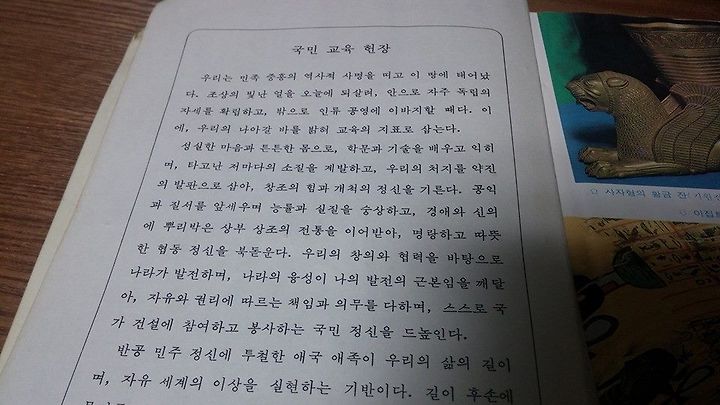 국민 교육 헌장
우리는 민족 중흥의 역사적 사명을 띠고 이 땅에 태어났
다. 조상의 빛난 얼을 오늘에 되살려, 안으로 자주 독립의
자세를 확립하고, 밖으로 인류 공영에 이바지할 때다. 이
에, 우리의 나아갈 바를 밝혀 교육의 지표로 삼는다.
성실한 마음과 튼튼한 몸으로, 학문과 기술을 배우고 익히
며, 타고난 저마다의 소질을 계발하고, 우리의 처지를 약진
의 발판으로 삼아, 창조의 힘과 개척의 정신을 기른다. 공익
과 질서를 앞세우며 능률과 실질을 숭상하고, 경애와 신의
에 뿌리박은 상부 상조의 전통을 이어받아, 명랑하고 따뜻
한 협동 정신을 북돋운다. 우리의 창의와 협력을 바탕으로
나라가 발전하며, 나라의 융성이 나의 발전의 근본임을 깨달
아, 자유와 권리에 따르는 책임과 의무를 다하며, 스스로 국
가 건설에 참여하고 봉사하는 국민 정신을 드높인다.
반공 민주 정신에 투철한 애국 애족이 우리의 삶의 길이
며, 자유 세계의 이상을 실현하는 기반이다. 길이 후손에
사자형의 황금 잔